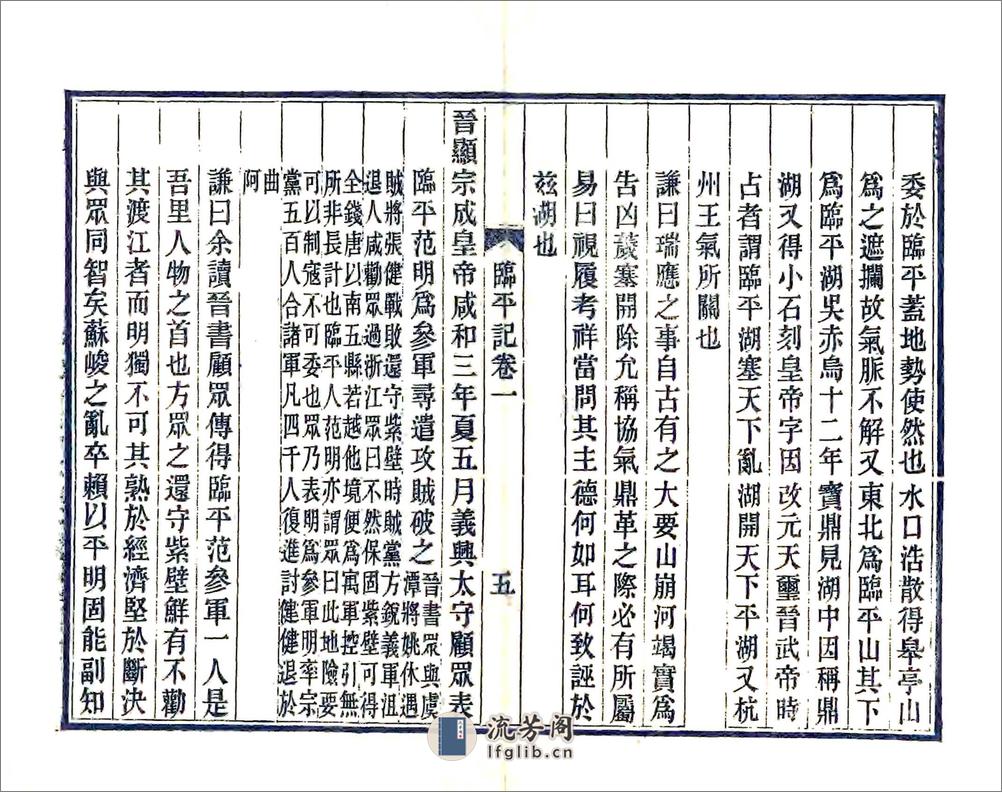 委於臨平蓋地勢使然也水口浩散得皋亭山
為之遮攔故氣脈不解又東北為臨平山其下
為臨平湖吳赤烏十二年寶鼎見湖中因稱鼎
湖又得小石刻皇帝字因改元天璽晉武帝時
占者謂臨平湖塞天下亂湖開天下平湖又杭
州王氣所關也
謙曰瑞應之事自古有之大要山崩河竭實為
告凶薐塞開除允稱協氣鼎革之際必有所屬
易曰視履考祥當問其主德何如耳何致誣於
茲湖也
臨平記卷一
五
晉顯宗成皇帝咸和三年夏五月義興太守顧眾表
臨平范明為參軍尋遣攻賊破之
晉書眾與虞
潭將姚休遇
賊將張健戰敗還守紫壁時賊黨方銳義軍沮
退人咸勸眾過浙江眾曰不然保固紫壁可得
全錢唐以南五縣若越他境便為寓軍控引無
所非長計也臨平人范明亦謂眾曰此地險要
可以制寇不可委也眾乃表明為參軍明率宗
黨五百人合諸軍凡四千人復進討健健退於
曲
阿
謙曰余讀晉書顧眾傳得臨平范參軍一人是
吾里人物之首也方眾之還守紫壁鮮有不勸
其渡江者而明獨不可其熟於經濟堅於斷決
與眾同智矣蘇峻之亂卒賴以平明固能副知
流芳阁
lfglib.cn